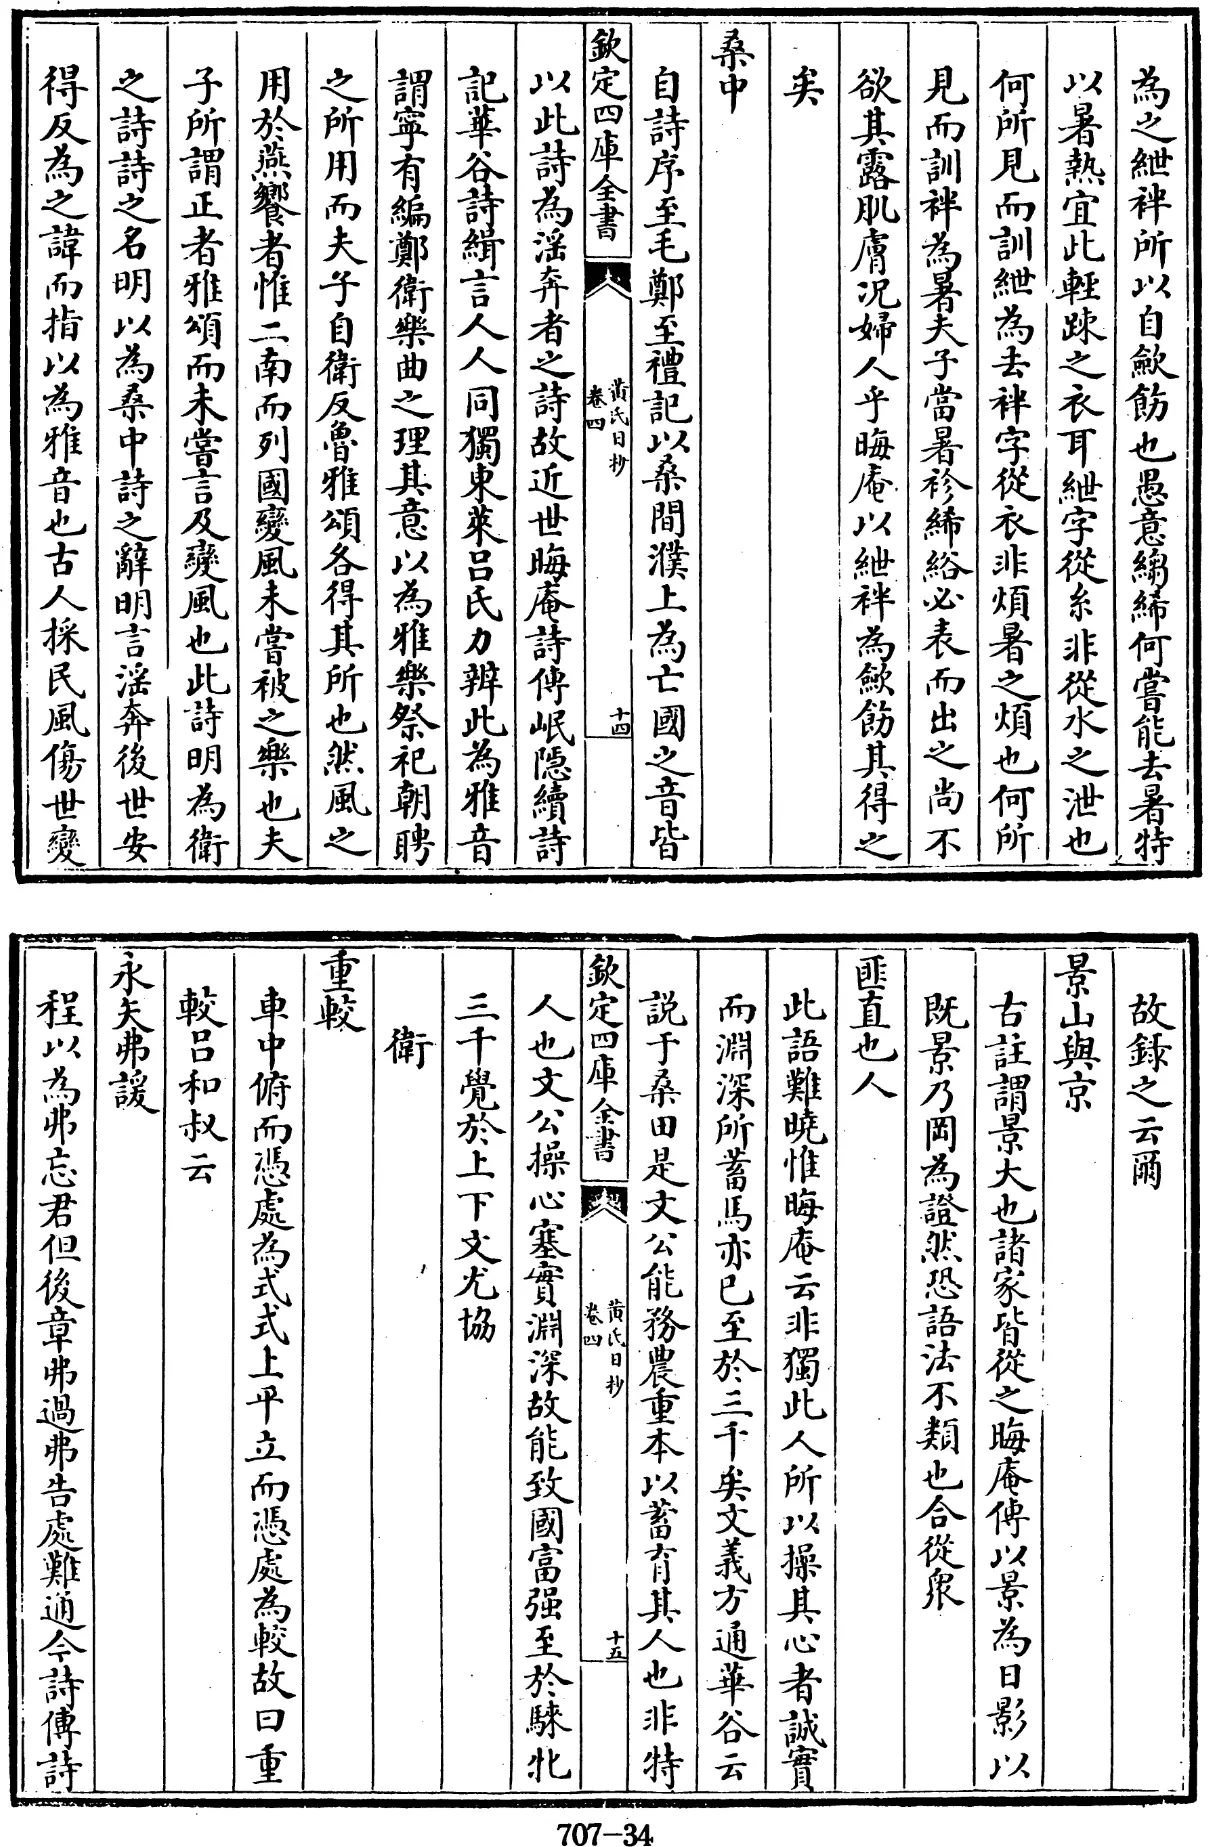 為之紲袢所以自歛飭也愚意縐絺何嘗能去暑特
以暑熱宜此輕踈之衣耳紲字從糸非從水之泄也
何所見而訓紲為去袢字從衣非煩暑之煩也何所
見而訓袢為暑夫子當暑袗絺綌必表而出之尚不
欲其露肌膚况婦人乎晦庵以紲袢為歛飭其得之
矣
桑中
自詩序至毛鄭至禮記以桑間濮上為亡國之音皆
欽定四庫全書
黄氏日抄
卷四
十四
以此詩為淫奔者之詩故近世晦庵詩傳岷隱續詩
記華谷詩緝言人人同獨東萊吕氏力辨此為雅音
謂寧有編鄭衛樂曲之理其意以為雅樂祭祀朝聘
之所用而夫子自衛反魯雅頌各得其所也然風之
用於燕饗者惟二南而列國變風未嘗被之樂也夫
子所謂正者雅頌而未嘗言及變風也此詩明為衛
之詩詩之名明以為桑中詩之辭明言淫奔後世安
得反為之諱而指以為雅音也古人採民風傷世變
故録之云爾
景山與京
古註謂景大也諸家皆從之晦庵傳以景為日影以
既景乃岡為證然恐語法不類也合從衆
匪直也人
此語難曉惟晦庵云非獨此人所以操其心者誠實
而淵深所蓄馬亦已至於三千矣文義方通華谷云
説于桑田是文公能務農重本以蓄育其人也非特
欽定四庫全書
黄氏日抄
卷四
十五
人也文公操心塞實淵深故能致國富强至於騋牝
三千覺於上下文尤協
衛
重較
車中俯而憑處為式式上平立而憑處為較故曰重
較吕和叔云
永矢弗諼
程以為弗忘君但後章弗過弗告處難通今詩傳詩
707-34